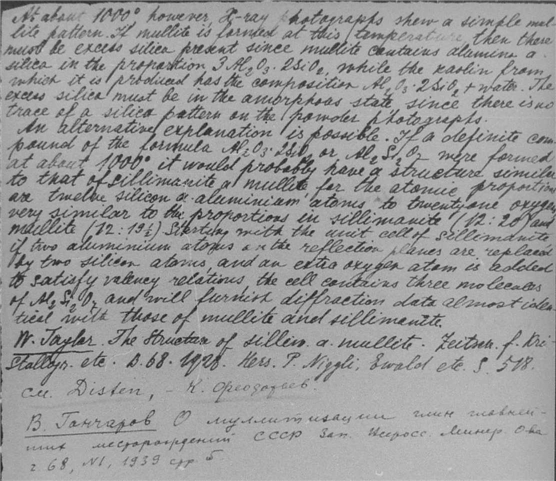 At about 1000° however, X-ray photographs show a simple mul-
lite pattern. If mullite is formed at this temperature, then there
must be excess silica present since mullite contains alumina a.
silica in the proportion 3Al₂O₃·2SiO₂, while the kaolin from
which it is produced has the composition Al₂O₃·2SiO₂ + water. The
excess silica must be in the amorphous state since there is no
trace of a silica pattern on the powder photographs.
An alternative explanation is possible. If a definite com-
pound of the formula Al₂O₃·2SiO₂ or Al₂Si₂O₇ were formed
at about 1000° it would probably have a structure similar
to that of sillimanite a. mullite for the atomic proportions
are twelve silicon a. aluminium atoms to twenty one oxygen
very similar to the proportions in sillimanite (12:20) and
mullite (12:19½) Starting with the unit cell of sillimanite
if two aluminium atoms on the reflection planes are replaced
by two silicon atoms, and an extra oxygen atom is added
to satisfy valency relations, the cell contains three molecules
of Al₂Si₂O₇ and will furnish diffraction data almost iden-
tical with those of mullite and sillimanite.
W. Taylor. The Structure of sillim. a. mullite. Zeitsch. f. Kri-
stallogr. etc. B. 68. 1928. Hers. P. Niggli, Ewald etc. S. 518.
см. Disten, – К. Феодотьев.
В. Гончаров О муллитизации глин главней-
ших месторождений СССР Зап. Всеросс. Минер. О-ва
т. 68, N1, 1939 стр. 5.